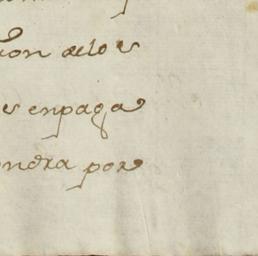 ion delos
es enpaga
ondra por